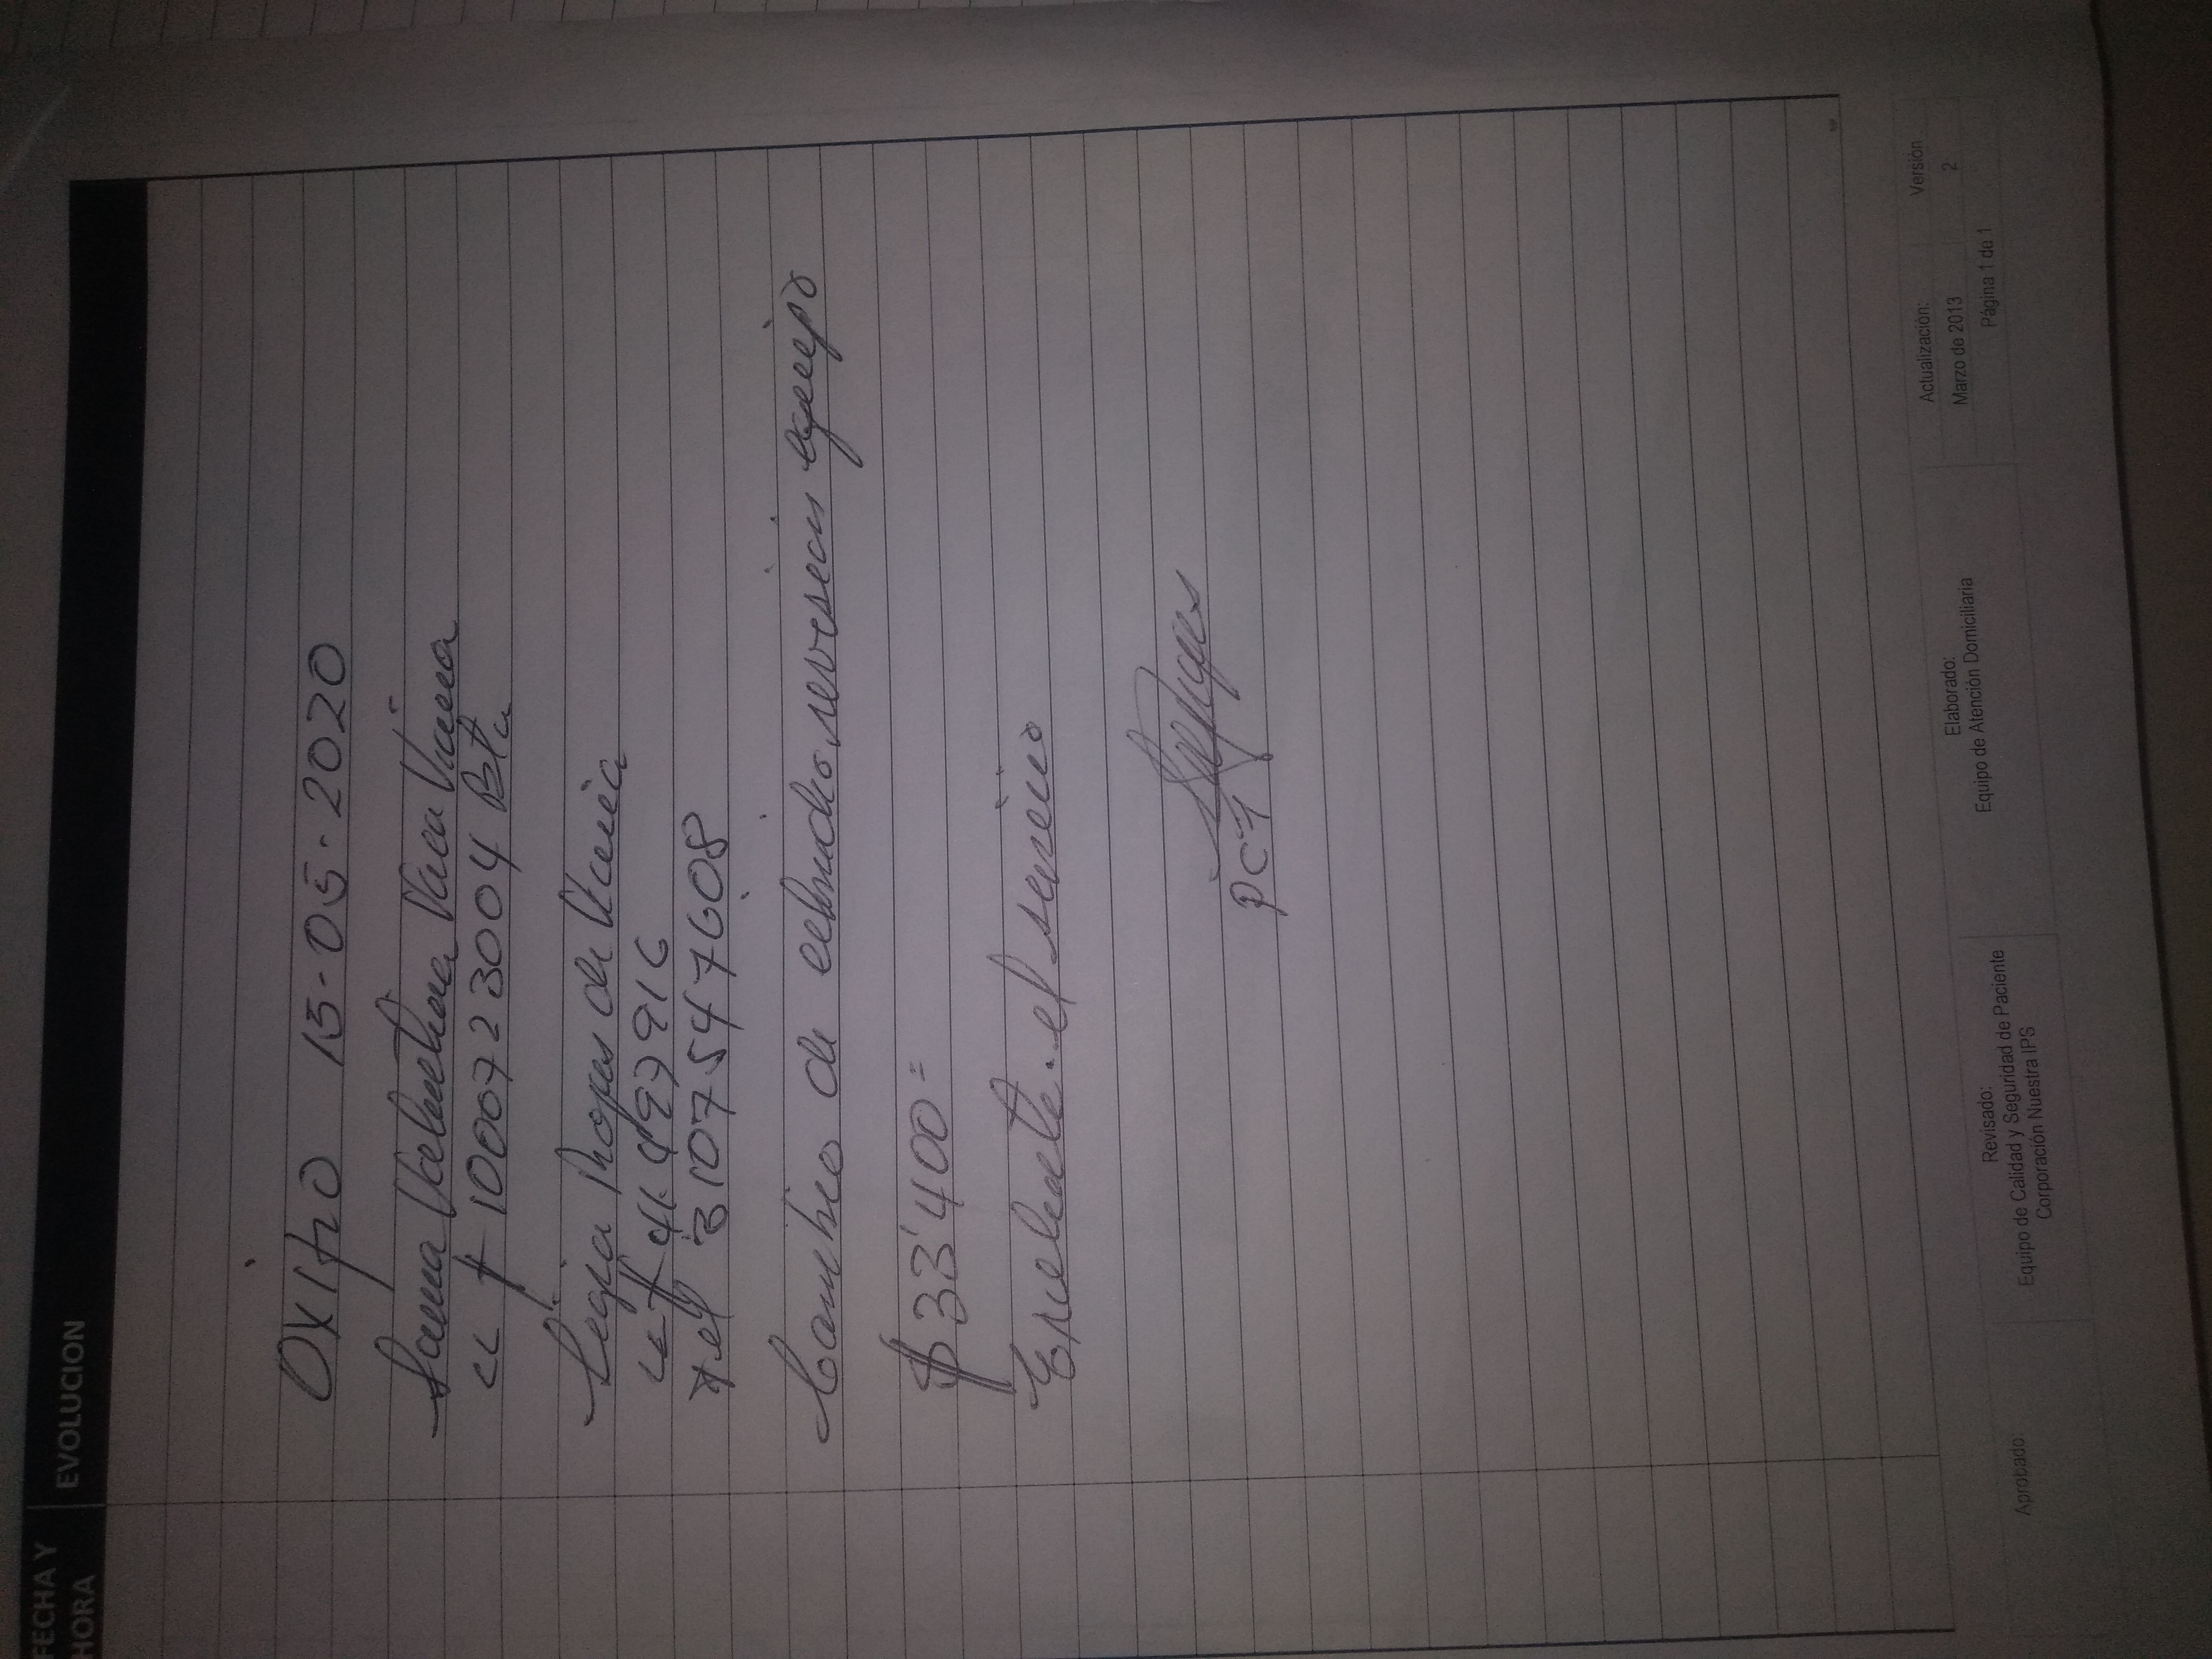 FECHA Y HORA
EVOLUCION
OXipro 15-05-2020
Valentina
cc # 1000723004 Bta
Ligia Reyes de
cc #
tel 3107547608
Cambio de cilindro, revision equipo
$33'400=
Exelente el servicio
PC-1
Aprobado
Revisado:
Equipo de Calidad y Seguridad de Paciente
Corporación Nuestra IPS
Elaborado:
Equipo de Atención Domiciliaria
Actualización:
Marzo de 2013
Versión
2
Página 1 de 1